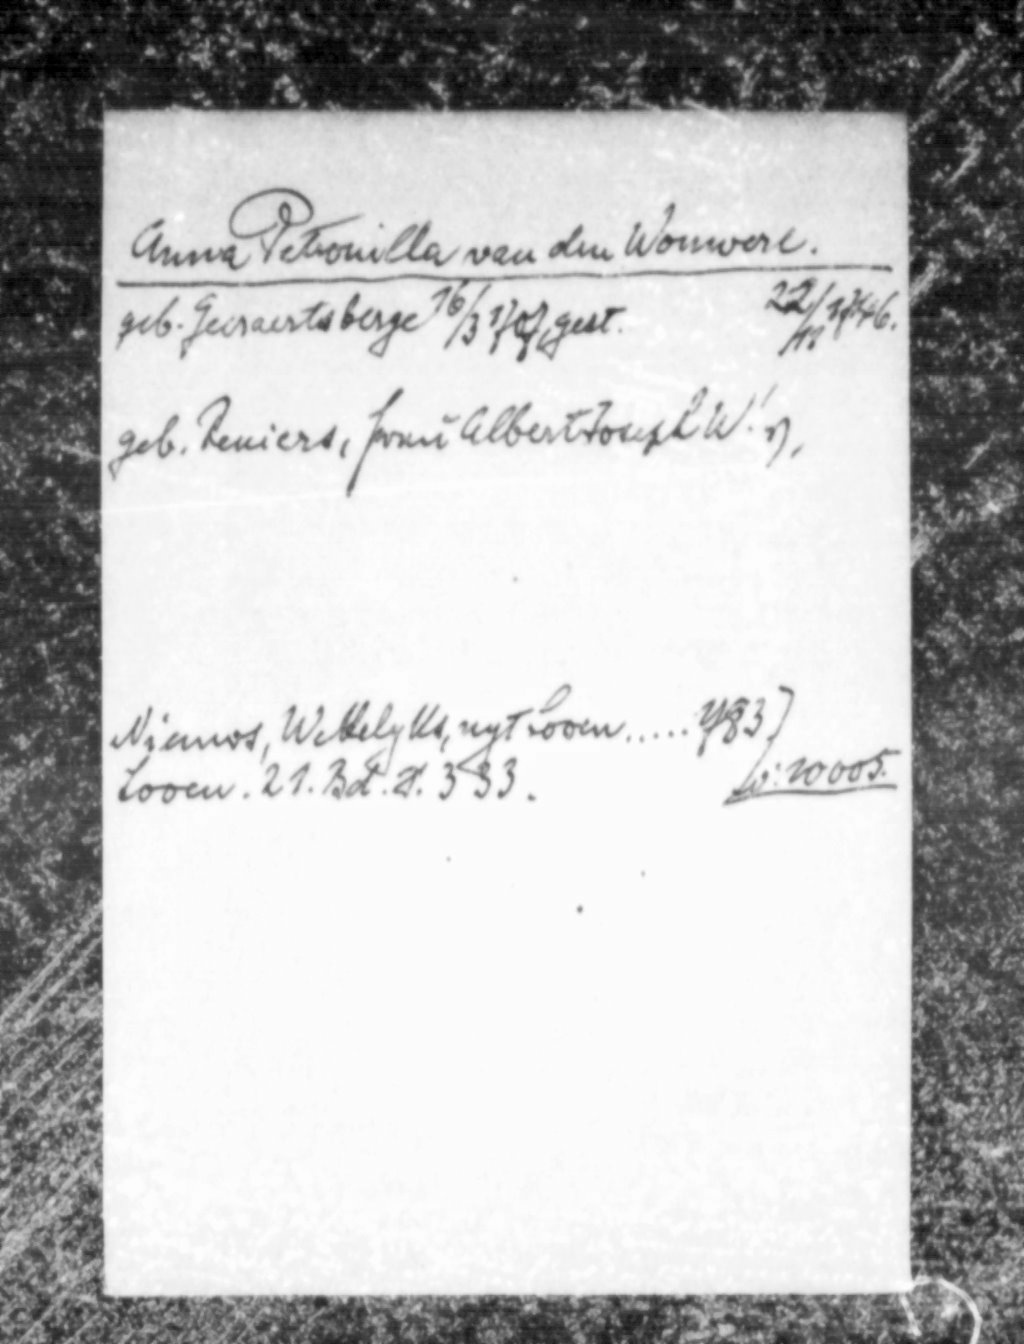 Anna Petronilla van den Womvere.
geb. Geeraertsberge 16/3 1707, gest. 22/11 1746.
geb. Reniers, frau Albert Joseph W!
Niemos, Wekelyks, uyt Loven ..... 1783
Loven. 21. Bd. S. 393. 10005.